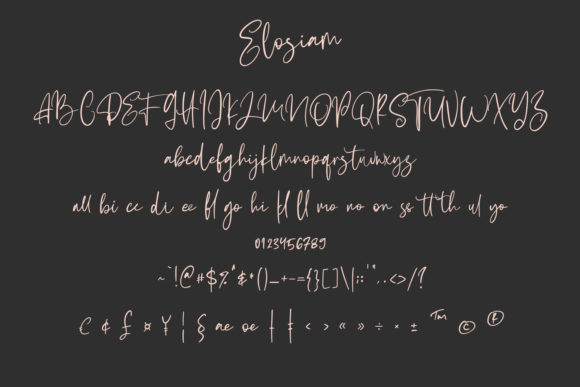 Elosiam
ABCDEFGHIJKLMNOPQRSTUVWXYZ
abcdefghijklmnopqrstuvwxyz
all bi cc di ee fl go hi kl ll mo no on ss tt th ul yo
0123456789
~`!@#$%^&*()_+-={}[]\|:;'",.<>/?
€ ¢ £ ¤ ¥ ¦ § ae oe † ‡ ‹ › « » ÷ × ± ™ © ®